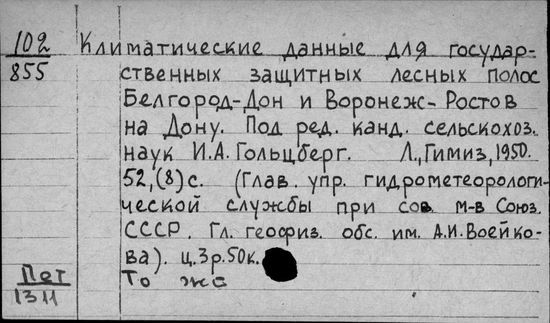 102
855
Климатические данные для государ-
ственных защитных лесных полос
Белгород-Дон и Воронеж-Ростов
на Дону. Под ред. канд. сельскохоз.
наук И.А. Гольцберг. Л., Гимиз, 1950.
52, (8) с. (Глав. упр. гидрометеорологи-
ческой службы при сов. м-в Союз.
СССР. Гл. геофиз. обс. им. А.И. Воейко-
ва). ц. 3 р. 50 к.
То же
Пет
1311